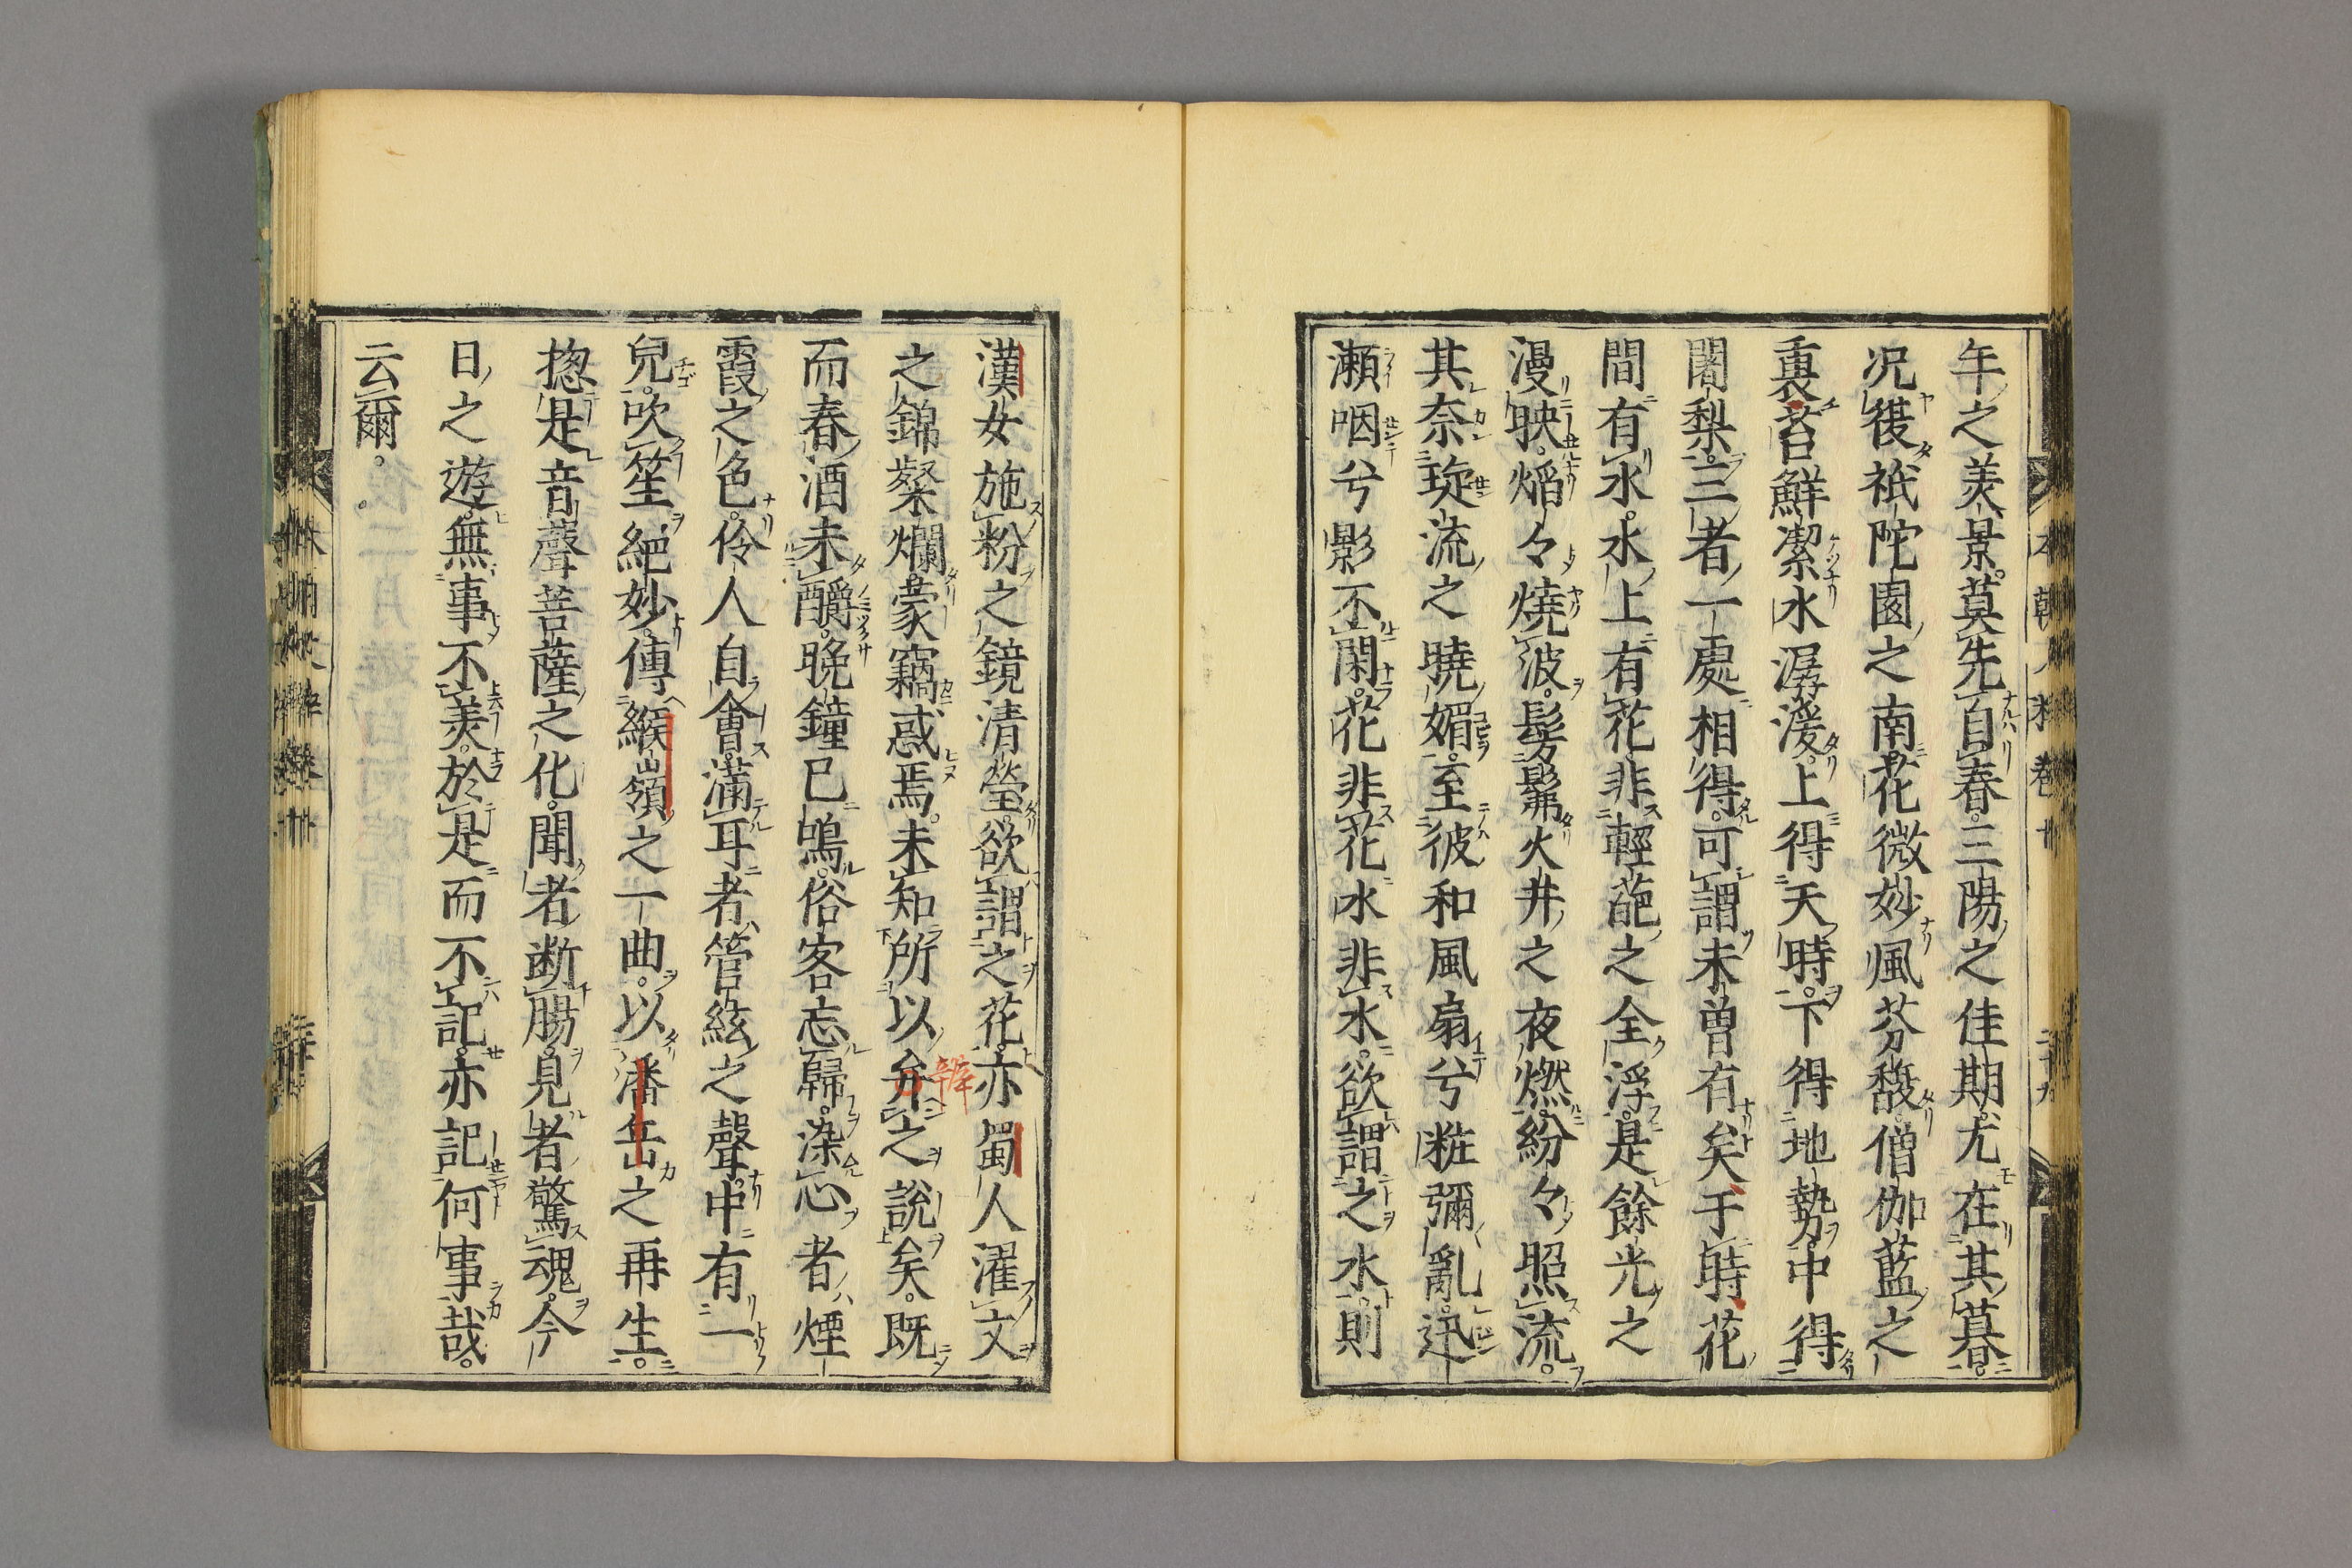 年之美景。莫先自春。三陽之佳期。尤在其暮。
况復祇陀園之南。花微妙風芬馥。僧伽藍之
裏。苔鮮潔水潺湲。上得天時。下得地勢。中得
闍梨。三者一處相得。可謂未曾有矣。于時花
間有水。水上有花。非輕葩之全浮。是餘光之
漫映。焰々燒波。髣髴火井之夜燃。紛々照流。
其奈琁流之曉媚。至彼和風扇兮粧彌亂。迅
瀨咽兮影不閑。花非花水非水。欲謂之水。則
漢女施粉之鏡清瑩。欲謂之花。亦蜀人濯文
之錦粲爛。蒙竊惑焉。未知所以弁之說矣。既
辨
而春酒未釂。晚鐘已鳴。俗客忘歸。染心者煙
霞之色。伶人自會。滿耳者管絃之聲。中有一
兒。吹笙絕妙。傳緱山嶺之一曲。以潘岳之再生。
揔是音聲菩薩之化。聞者断腸。見者驚魂。今
日之遊。無事不美。於是而不記。亦記何事哉。
云爾。